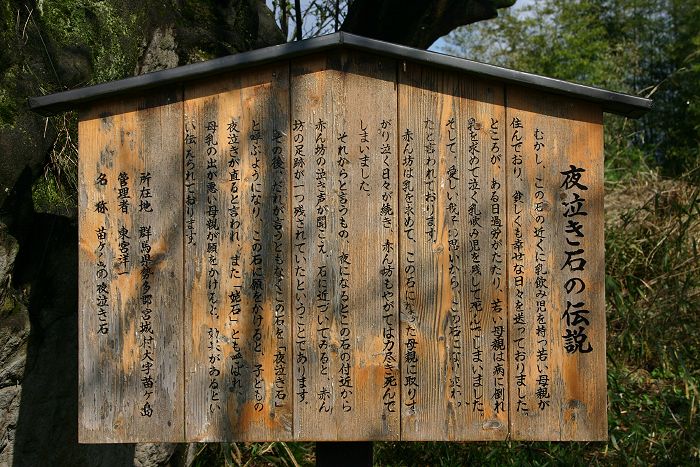 夜泣き石の伝説
むかし、この石の近くに乳飲み児を持つ若い母親が
住んでおり、貧しくも幸せな日々を送っておりました。
ところが、ある日過労がたたり、若い母親は病に倒れ
乳を求めて泣く乳飲み児を残して死んでしまいました。
そして、愛しい我が子の思いから、この石になり変わっ
たと言われております。
赤ん坊は乳を求めて、この石になった母親に取りす
がり泣く日々が続き、赤ん坊もやがては力尽き死んで
しまいました。
それからと言うもの、夜になるとこの石の付近から
赤ん坊の泣き声が聞こえ、石に近づいてみると、赤ん
坊の足跡が一つ残されていたということであります。
その後、だれが言うともなくこの石を「夜泣き石」
と呼ぶようになり、この石に願をかけると、子どもの
夜泣きが直ると言われ、また「姥石」とも呼ばれ、
母乳の出が悪い母親が願をかけると、効きがあるとい
い伝えられております。
所在地 群馬県勢多郡宮城村大字苗ヶ島
管理者 東宮洋一
名称 苗ヶ島の夜泣き石